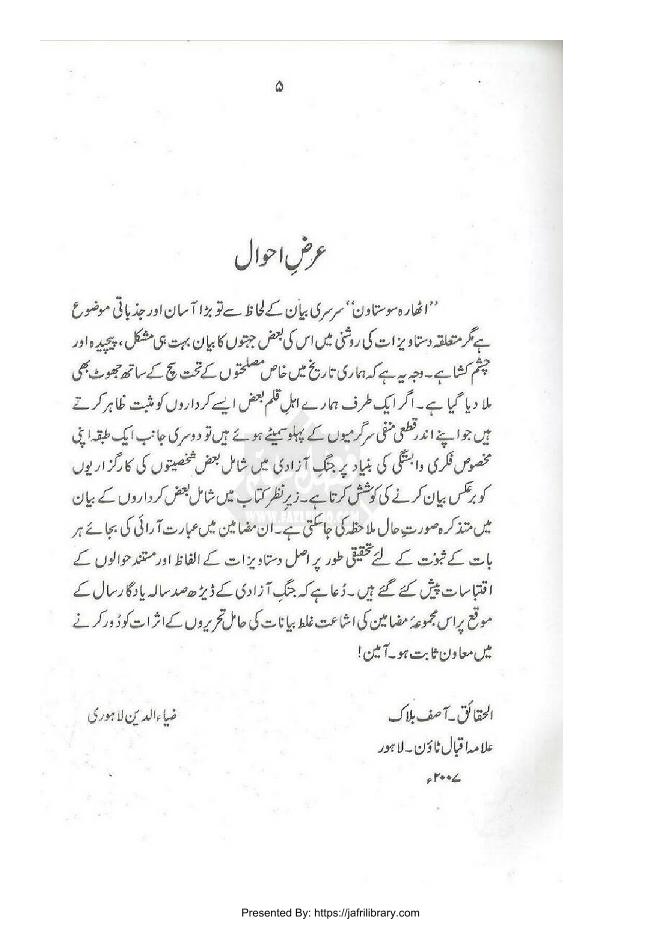 ۵
عرضِ احوال
"اٹھارہ سو ستاون" سرسری بیان کے لحاظ سے تو بڑا آسان اور جذباتی موضوع
ہے مگر متعلقہ دستاویزات کی روشنی میں اس کی بعض جہتوں کا بیان بہت ہی مشکل، پیچیدہ اور
چشم کشا ہے۔ وجہ یہ ہے کہ ہماری تاریخ میں خاص مصلحتوں کے تحت سچ کے ساتھ جھوٹ بھی
ملا دیا گیا ہے۔ اگر ایک طرف ہمارے اہلِ قلم بعض ایسے کرداروں کو مثبت ظاہر کرتے
ہیں جو اپنے اندر قطعی منفی سرگرمیوں کے پہلو سمیٹے ہوئے ہیں تو دوسری جانب ایک طبقہ اپنی
مخصوص فکری وابستگی کی بنیاد پر جنگِ آزادی میں شامل بعض شخصیتوں کی کارگزاریوں
کو برعکس بیان کرنے کی کوشش کرتا ہے۔ زیرِ نظر کتاب میں شامل بعض کرداروں کے بیان
میں متذکرہ صورتِ حال ملاحظہ کی جاسکتی ہے۔ ان مضامین میں عبارت آرائی کی بجائے ہر
بات کے ثبوت کے لئے تحقیقی طور پر اصل دستاویزات کے الفاظ اور مستند حوالوں کے
اقتباسات پیش کئے گئے ہیں۔ دُعا ہے کہ جنگِ آزادی کے ڈیڑھ صد سالہ یادگار سال کے
موقع پر اس مجموعۂ مضامین کی اشاعت غلط بیانات کی حامل تحریروں کے اثرات کو دُور کرنے
میں معاون ثابت ہو۔ آمین!
الحقائق۔ آصف بلاک ضیاء الدین لاہوری
علامہ اقبال ٹاؤن۔ لاہور
۲۰۰۷ء
Presented By: https://jafrilibrary.com